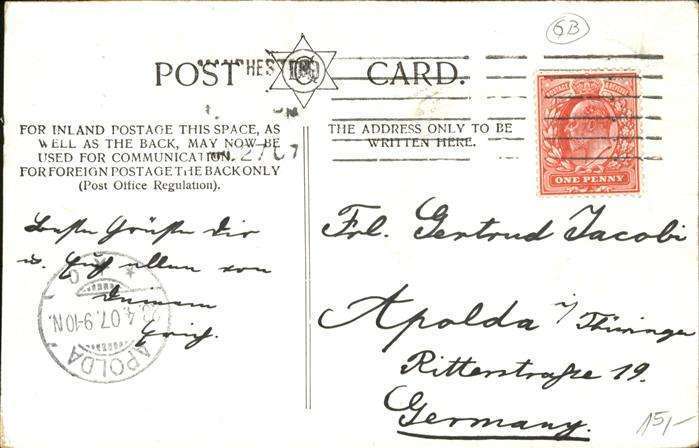 6B
POST CARD.
POSTAGE REVENUE
ONE PENNY
FOR INLAND POSTAGE THIS SPACE, AS
WELL AS THE BACK, MAY NOW BE
USED FOR COMMUNICATION.
FOR FOREIGN POSTAGE THE BACK ONLY
(Post Office Regulation).
THE ADDRESS ONLY TO BE
WRITTEN HERE.
Besten Grüße Dir
u. Euch allen von
Deinem
Erich.
APOLDA
4.07.9-10N.
Frl. Gertrud Jacobi
Apolda i/Thüringen
Ritterstraße 19.
Germany.
15,-